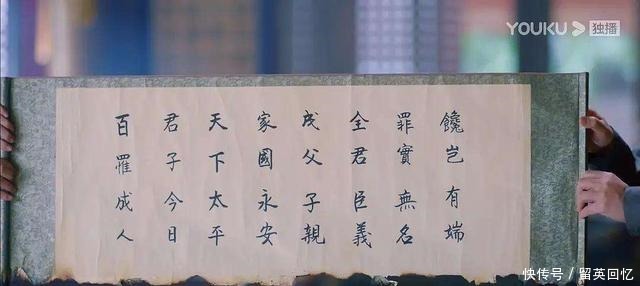 YOUKU 独播
饞岂有端
罪實無名
全君臣義
成父子親
家國永安
天下太平
君子今日
百罹成人
快传号 / 留英回忆